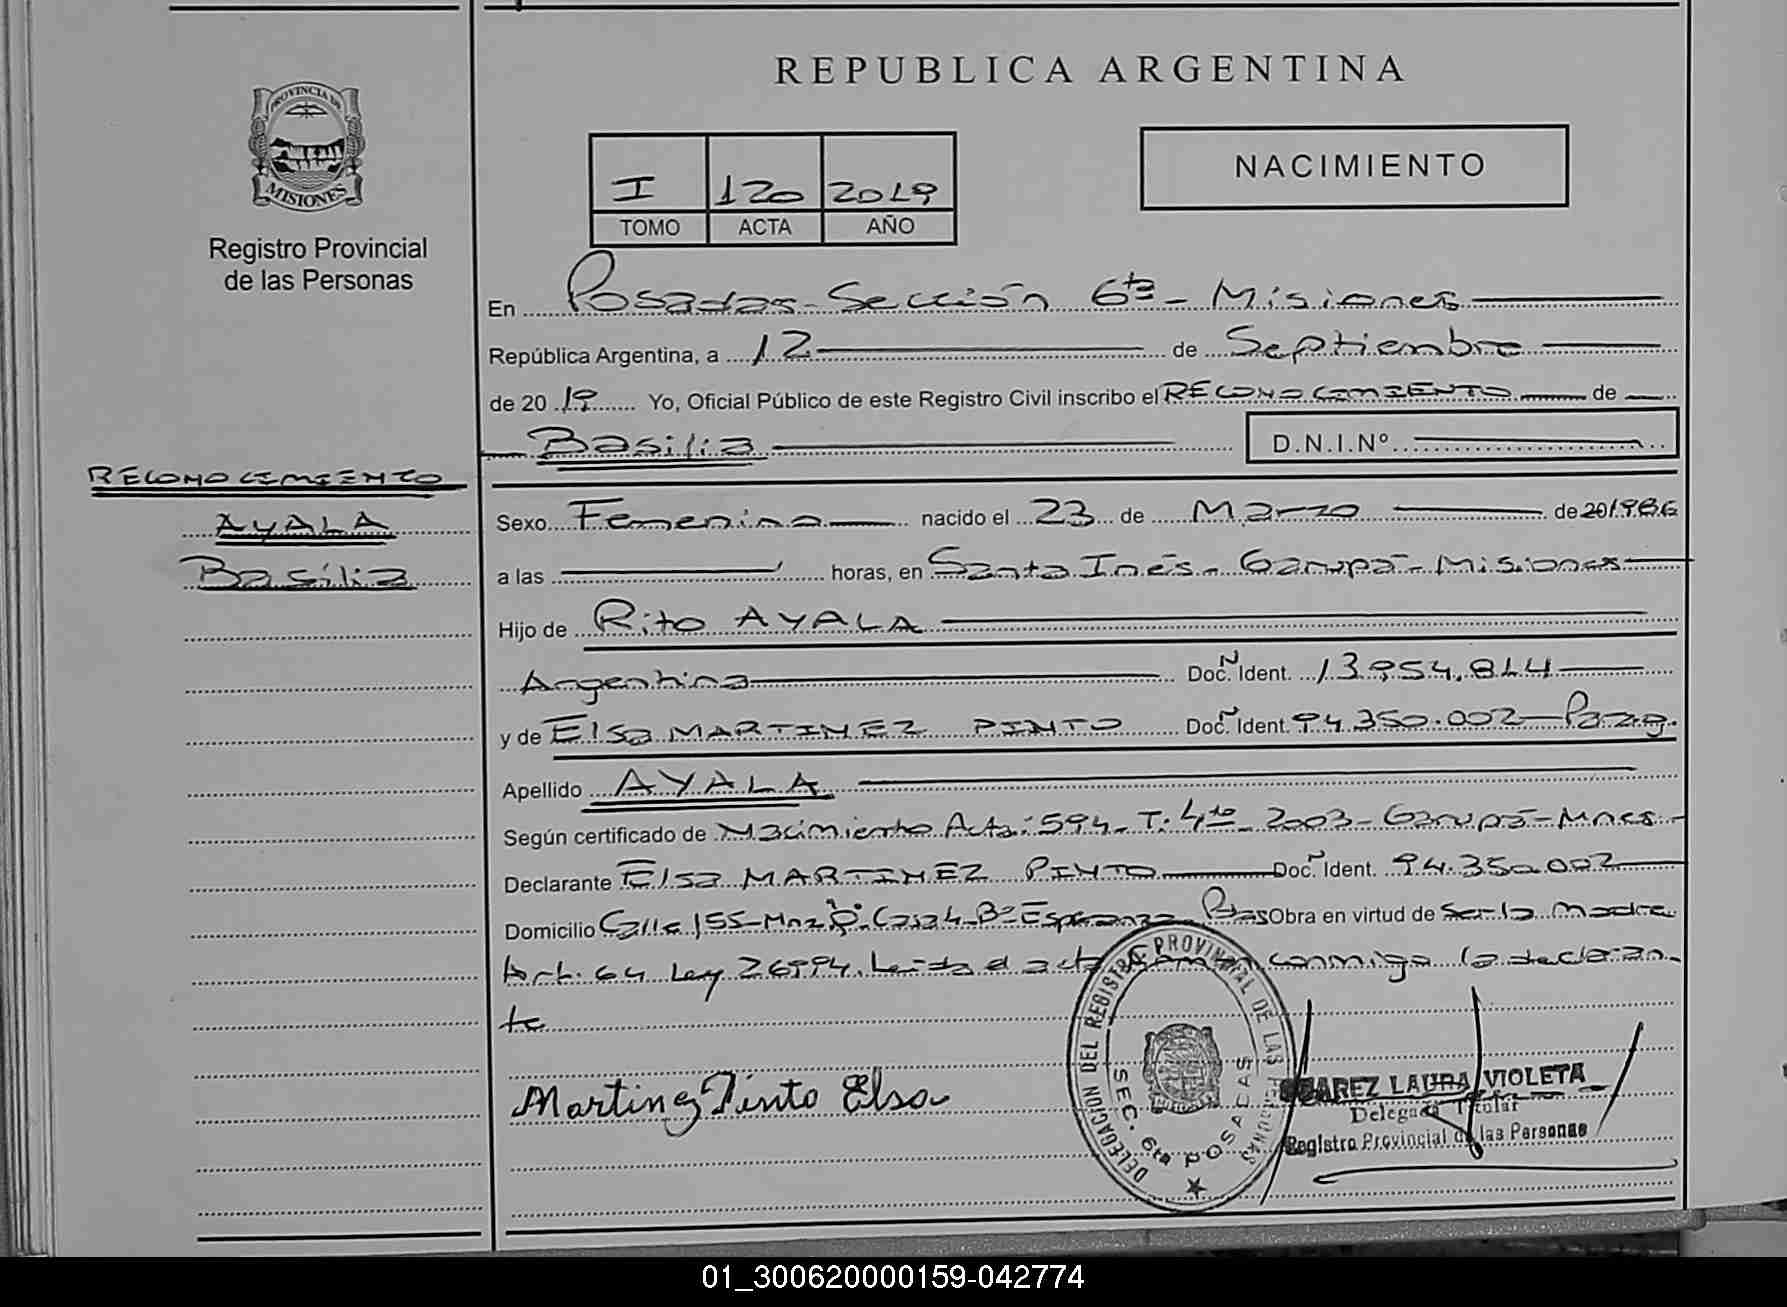 REPUBLICA ARGENTINA
PROVINCIA DE
MISIONES
Registro Provincial
de las Personas
I 120 2019
TOMO ACTA AÑO
NACIMIENTO
En Posadas - Sección 6ta - Misiones
República Argentina, a 12 de Septiembre
de 2019 Yo, Oficial Público de este Registro Civil inscribo el RECONOCIMIENTO de
Basilia D.N.I.Nº
RECONOCIMIENTO
AYALA
Basilia
Sexo Femenino nacido el 23 de Marzo de 20/1986
a las horas, en Santa Inés - Garupá - Misiones
Hijo de Rito AYALA
Argentino Doc. N Ident. 13.954.814
y de Elsa MARTINEZ PINTO Doc. N Ident. 94.350.002 - Parag.
Apellido AYALA
Según certificado de Nacimiento Acta: 594 - T: 4to - 2003 - Garupá - Mnes -
Declarante Elsa MARTINEZ PINTO Doc. N Ident. 94.350.002
Domicilio Calle 155 - Mnz Casa 4 - Bº Esperanza - Pdas Obra en virtud de Ser la Madre
Art. 64 Ley 26994. Leída el acta conmigo la declaran-
te
Martinez Pinto Elsa
DELEGACION DEL REGISTRO PROVINCIAL DE LAS PERSONAS
SEC. 6ta POSADAS
SUAREZ LAURA VIOLETA
Delegada Titular
Registro Provincial de las Personas
01_300620000159-042774